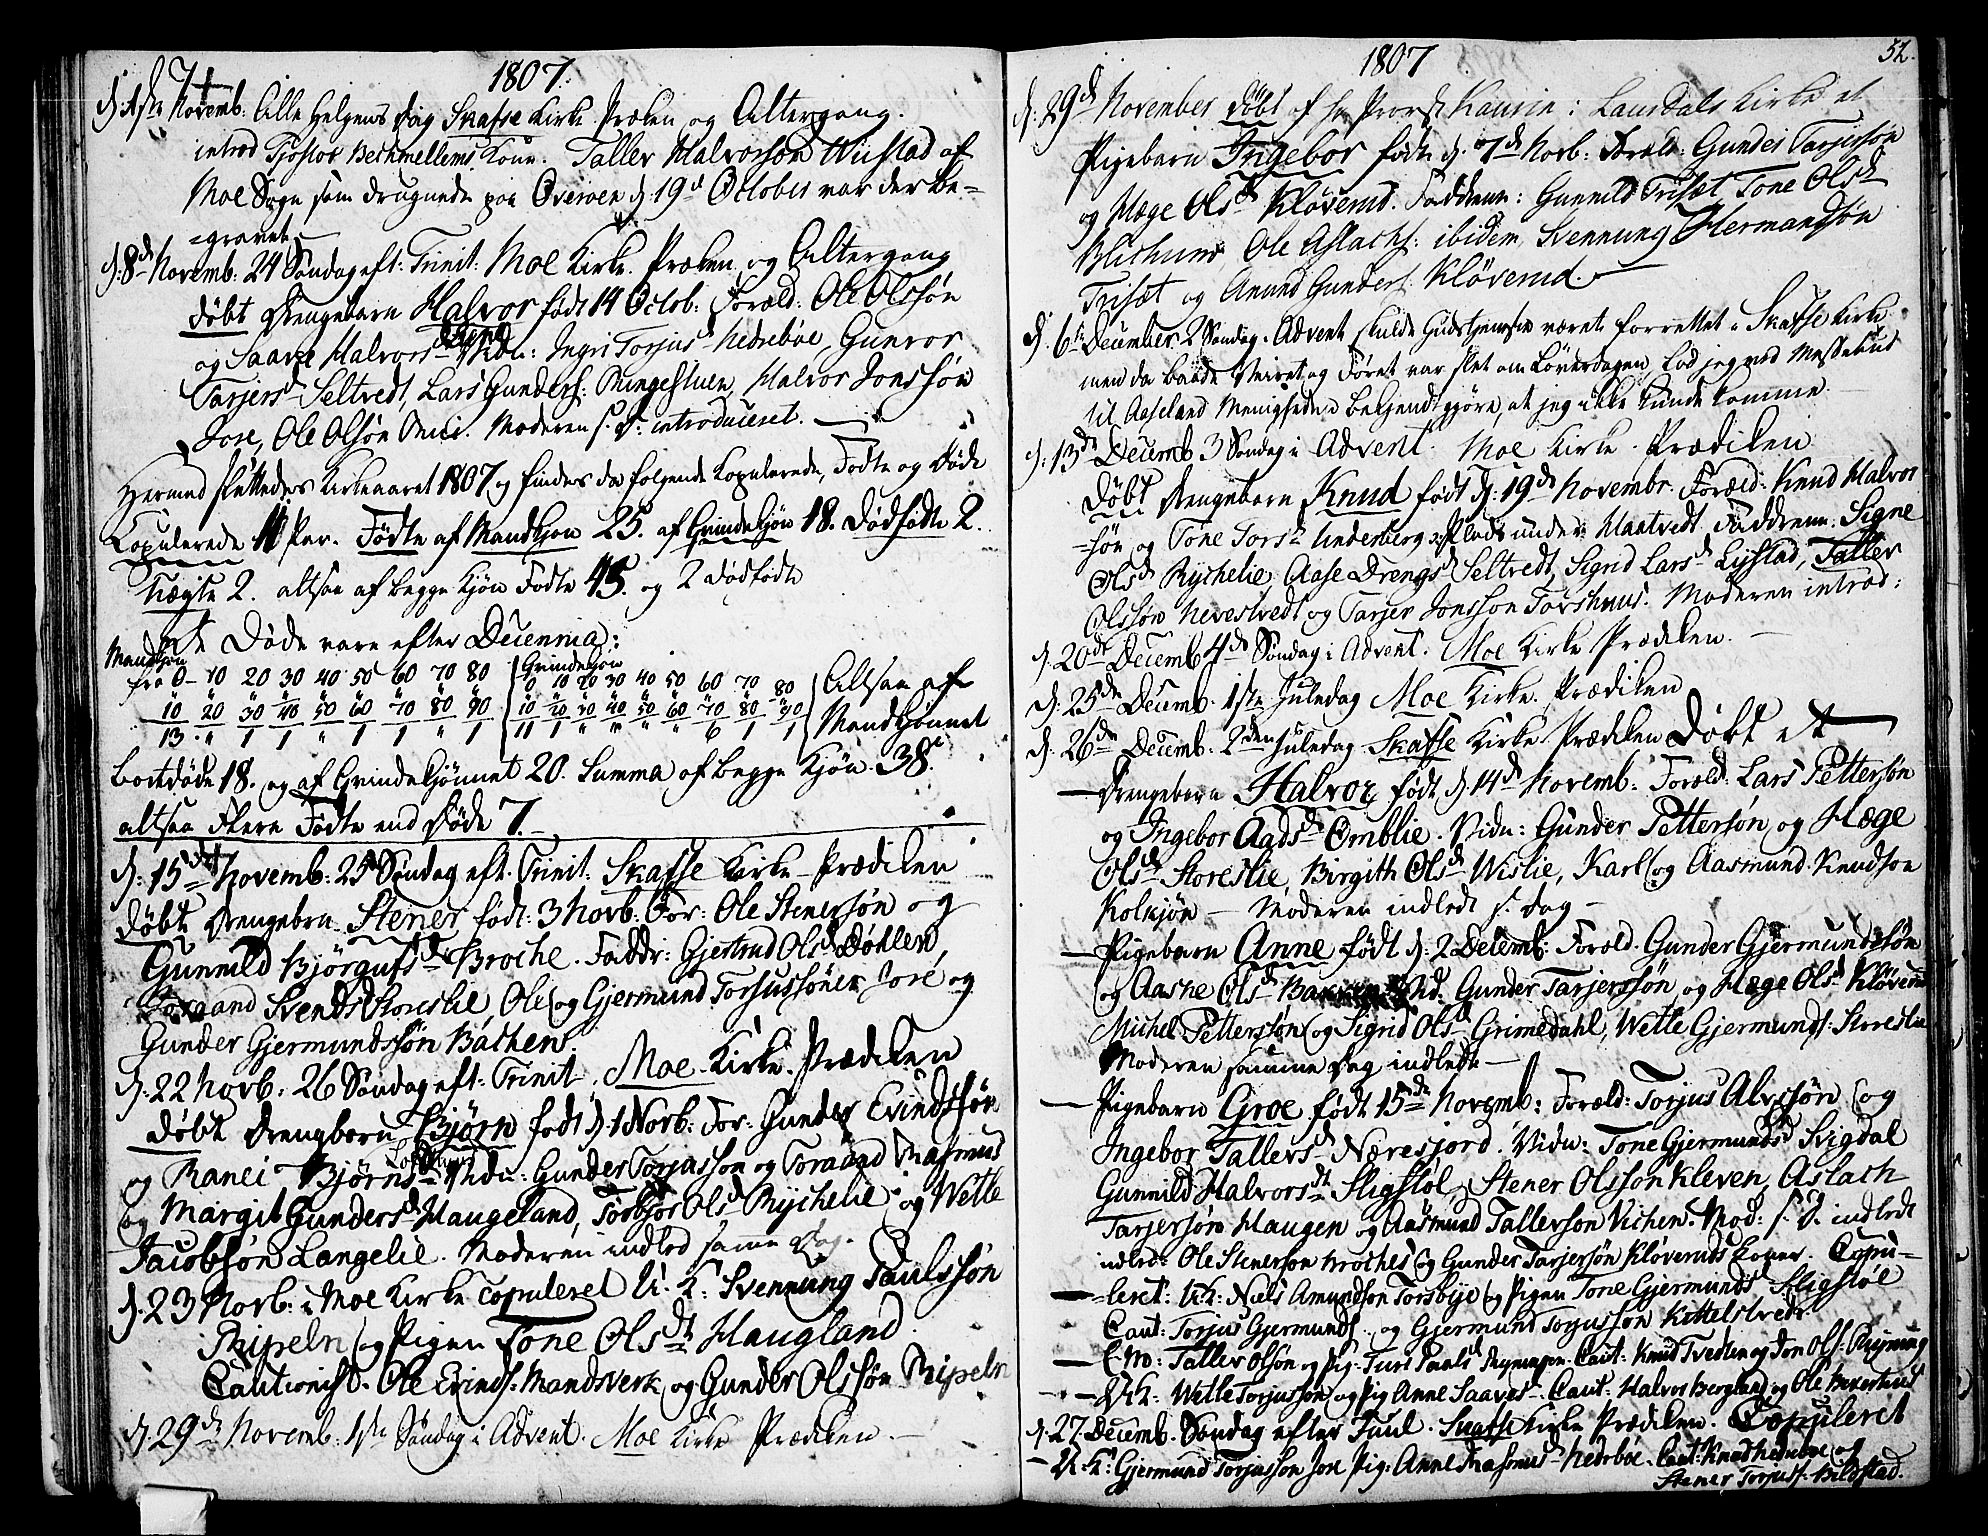 1807.
d: 1ste Novemb: Alle Helgens Dag Skafse Kirke Præken og Altergang.
introd Tjøstov Kone. Taller Halvorsøn Wistad af
Moe Sogn som drugnede paa Øveraen d 19d October var der be=
=gravet.
d: 8de Novemb: 24 Søndag eft: Trinit: Moe Kirke. Præken og Altergang
døbt Drengebarn Halvor født 14 Octob: Foræld: Ole Olssøn
og Saave Halvorsd Vidn: Ingri Torjusd Nedrebøe, Gunvor
Tarjersd Seltvedt, Lars Gunders: Ringestuen, Halvor Jonssøn
Jore, Ole Olsøn Moderen s. D: introduceret.
Hermed sluttedes Kirkeaaret 1807 og findes da følgende Kopulerede, Fødte og Døde
Kopulerede 11 Par. Fødte af Mandkjøn 25. af Qvindekjøn 18. Dødfødte 2.
2. altsaa af begge Kjøn Fødte 45. og 2 dødfødte
De Døde vare efter Decennia:
Mandkjøn Qvindekjøn
fra 0 10 20 30 40 50 60 70 80 0 10 20 30 40 50 60 70 80 Altsaa af
10 20 30 40 50 60 70 80 90 10 20 30 40 50 60 70 80 90 Mandkjønnet
13 " 1 1 " 1 1 " 1 11 1 " " " " 6 1 1
bortdøde 18. og af Qvindekjønnet 20. Summa af begge Kjøn 38.
altsaa Flere Fødte end Døde 7.
d: 15de Novemb: 25 Søndag eft. Trinit: Skafse Kirke Prædiken
døbt Drengebrn Stener født: 3 Novb: For: Ole Stenersøn og
Gunnild Bjørgufsd Broche. Faddr: Gjertrud Olsd Døhlen,
Toraand Svendsd Storeslie, Ole og Gjermund Torjussøner Jore og
Gunder Gjermundssøn Bakken.
d: 22 Novb: 26 Søndag eft: Trinit. Moe Kirke. Prædiken
døbt Drengbarn Bjørn født d. 1 Novb: For: Gunder Evindssøn
og Ranei Bjørnsd Vidn: Gunder Torjussøn og Toraand Rasmusd
og Margit Gundersd Haugeland, Torbjør Olsd Rychelie og Wetle
Jacobsøn Langelie. Moderen indled samme Dag.
d: 23 Novb: i Moe Kirke copuleret U. K: Svennung Paulssøn
Ripeln og Pigen Tone Olsdt Haugland.
Cautionist. Ole Evinds: Mandsverk og Gunder Olssøn Ripeln
d: 29de Novemb: 1ste Søndag i Advent. Moe Kirke Prædiken.
1807
52.
d: 29d November døbt af Hr Provst Kaurin i Laurdals Kirke et
Pigebarn Ingebor født d. 7de Novb: Foræld: Gunder Tarjesøn
og Hæge Olsd Kløverud. Faddrene: Gunnild Trisæt Tone Olsdt
Ole Aslachs: ibidem, Svennung Hermandsøn
Trisæt og Anund Gunders: Kløverud.
d. 6te December. 2 Søndag i Advent skulde Gudstjeneste været forrettet i Skafse Kirke
men da baade Veiret og Føret var slet om Løverdagen, lod jeg ved Messebud
til Menigheden bekjendtgjøre, at jeg ikke kunde komme
d: 13de Decemb 3 Søndag i Advent. Moe Kirke. Prædiken
Døbt Drengebarn Knud født d: 19de Novembr. Foræld: Knud Halvor
=søn og Tone Torsd Underberg Plads under Haatvedt. Faddrene: Signe
Olsd Rychelie, Aase Drengsd Seltvedt, Sigrid Larsd Lystad, Taller
Olssøn Nevestvedt og Tarjer Jonssøn Førshuus. Moderen introd:
d. 20de Decemb 4de Søndag i Advent. Moe Kirke Prædiken.
d. 25de Decemb. 1ste Juledag Moe Kirke. Prædiken
d. 26de Decemb. 2den Juledag. Skafse Kirke Prædiken Døbt et
Drengebarn Halvor født d. 14de Novemb: Foræld: Lars Pettersøn
og Ingebor Aadsd Omblie. Vidn: Gunder Pettersøn og Hæge
Olsd Storeslie, Birgith Olsd Wislie, Karl og Aasmund Knudsøn
Kolkjøn - Moderen indledt s. Dag -
Pigebarn Anne født d: 2 Decemb: Foræld. Gunder Gjermundssøn
og Aashe Olsd Bakken Vid. Gunder Tarjerssøn og Hæge Olsd Kløverud
Michel Pettersøn og Sigrid Olsd Grimedahl, Wetle Gjermunds: Storeslie
Moderen samme Dag indledt
Pigebarn Groe født 15de Novemb: Foræld: Torjus Alvssøn og
Ingebor Tallersd Næresjord. Vidn: Tone Gjermundsd Svigdal
Gunnild Halvorsdt Sligstøl, Stener Olssøn Kleven, Aslach
Tarjersøn Haugen og Aasmund Tallerson Vichen. Mod: s. D. indledt
indled: Ole Stenersøn Broches og Gunder Tarjersøn Kløveruds Koner. Copu=
=leret: U.K: Niels Amundsøn Torsbye og Pigen Tone Gjermundsd Sligstøl
Caut: Torjus Gjermunds. og Gjermund Torjussøn Kittelstvedt
E.M: Taller Olsøn og Pig. Turi Paulsd Ryningen. Caut: Knud Tvedten og Jon Ols: Ryning
U.K: Wetle Torjussøn og Pig Anne Saavesd Caut: Halvor Bergland og Ole
d. 27 Decemb. Søndag efter Juul. Skafse Kirke Prædiken. Copuleret
U.K: Gjermund Torjussøn Jore Pig: Anne Rasmusd Nedrbøe. Caut: Knud Nedrebøe og
Stener Torjus: